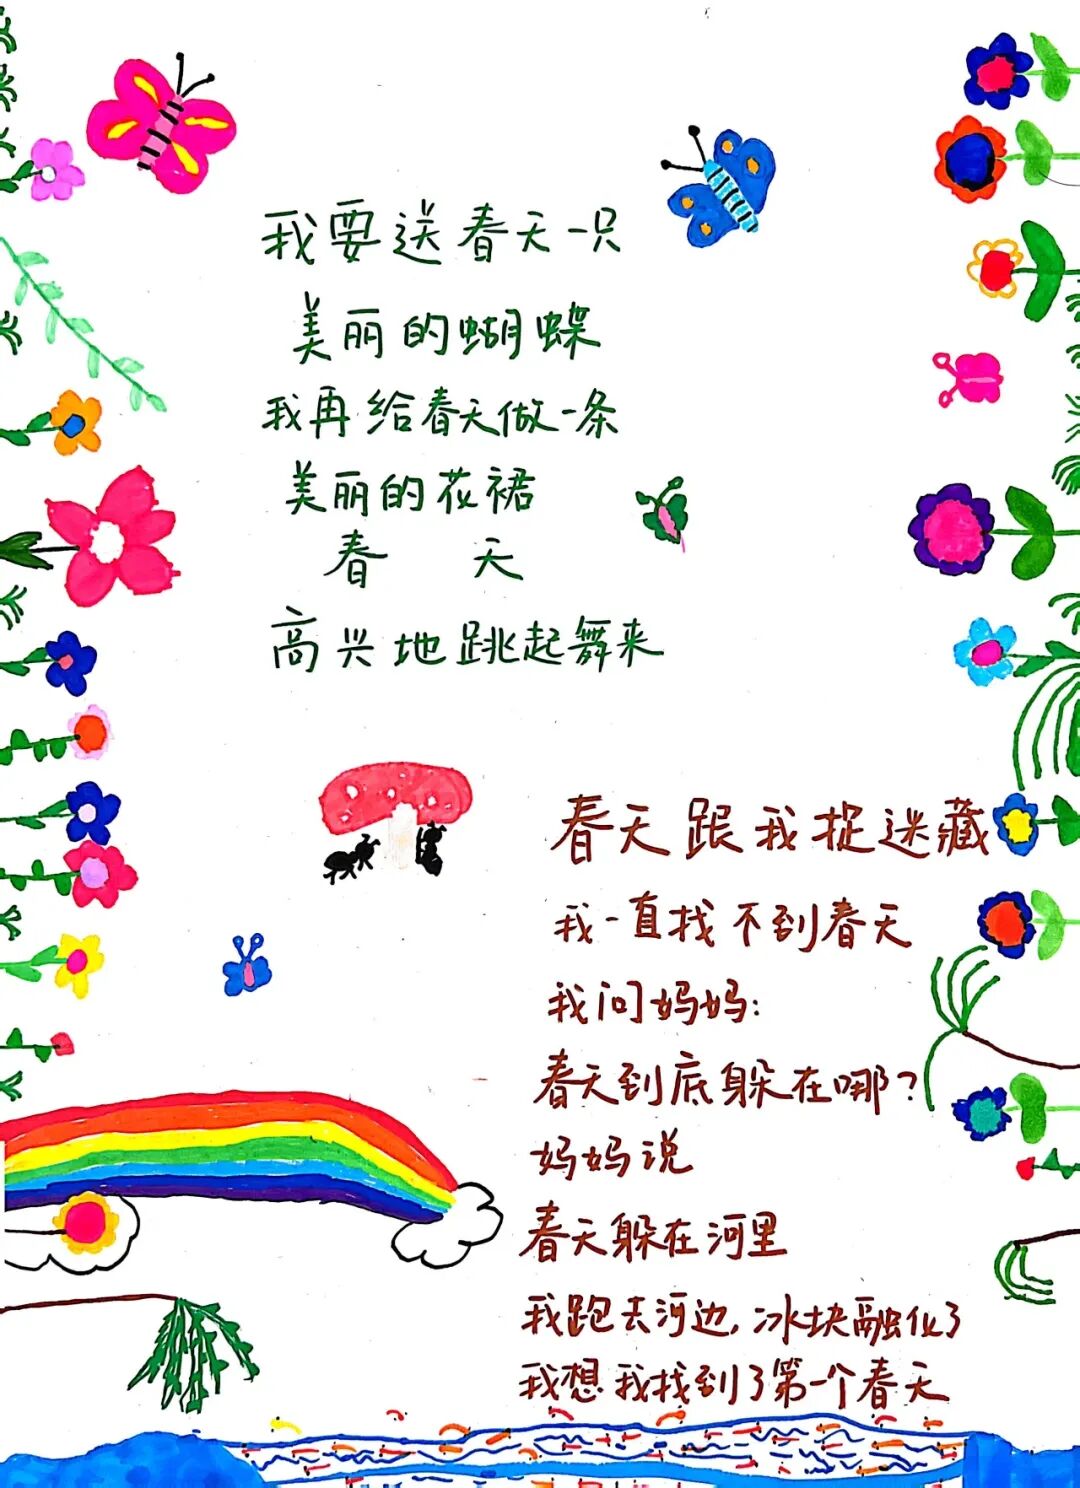 我要送春天一只
美丽的蝴蝶
我再给春天做一条
美丽的花裙
春 天
高兴地跳起舞来
春天跟我捉迷藏
我一直找不到春天
我问妈妈:
春天到底躲在哪?
妈妈说
春天躲在河里
我跑去河边,冰块融化了
我想我找到了第一个春天